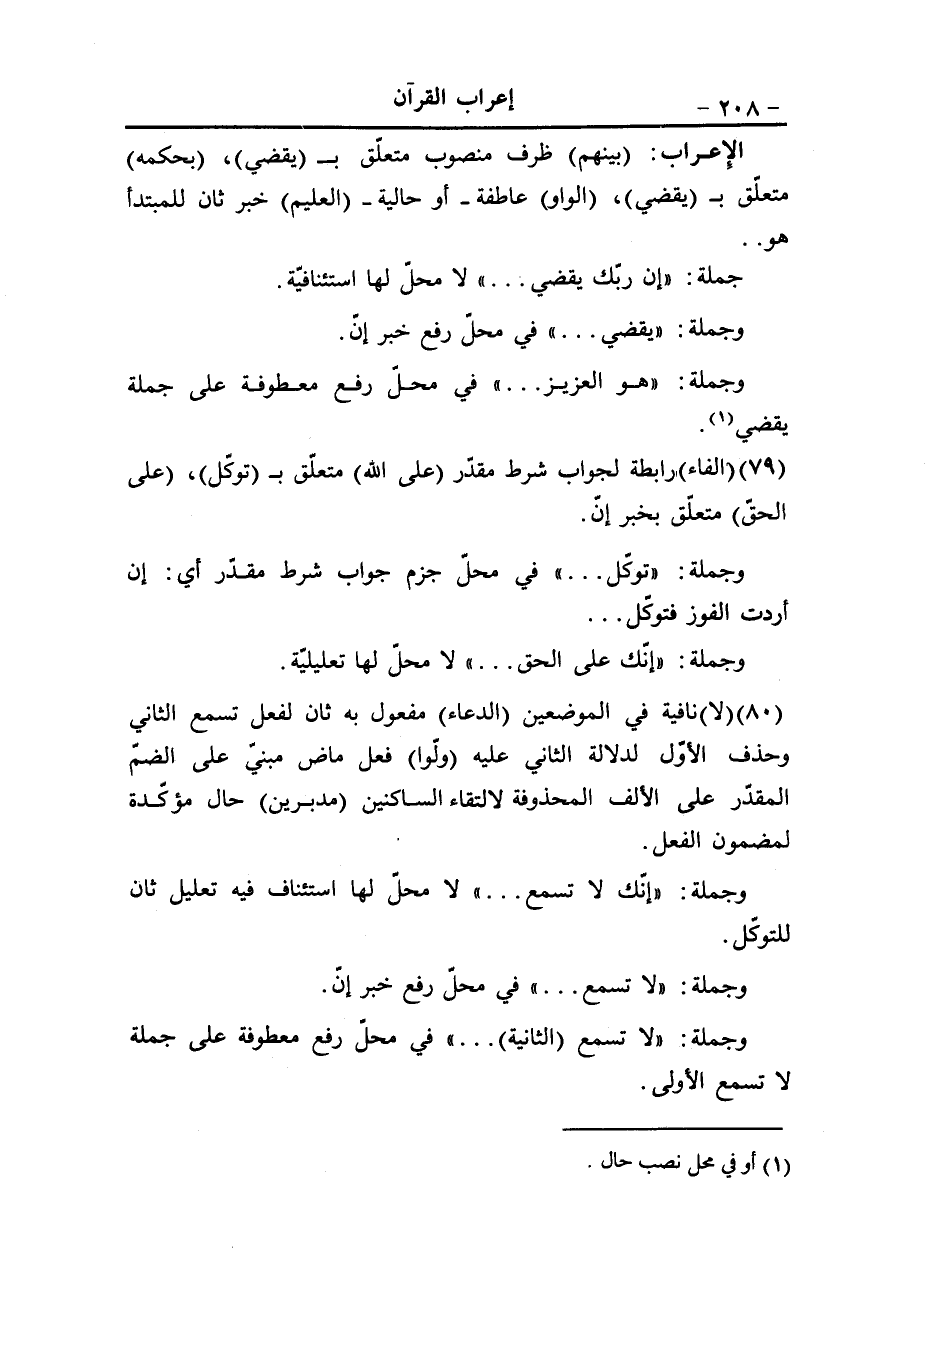 - ٢٠٨ -
إعراب القرآن
الإعـراب: (بينهم) ظرف منصوب متعلّق بـ (يقضي)، (بحكمه)
متعلّق بـ (يقضي)، (الواو) عاطفة ـ أو حالية ـ (العليم) خبر ثان للمبتدأ
هو..
جملة: «إن ربّك يقضي...» لا محلّ لها استئنافيّة.
وجملة: «يقضي...» في محلّ رفع خبر إنّ.
وجملة: «هـو العزيـز...» في محـلّ رفـع معـطوفـة على جملة
يقضي(١).
(٧٩)(الفاء)رابطة لجواب شرط مقدّر (على الله) متعلّق بـ (توكّل)، (على
الحقّ) متعلّق بخبر إنّ.
وجملة: «توكّل...» في محلّ جزم جواب شرط مقـدّر أي: إن
أردت الفوز فتوكّل...
وجملة: «إنّك على الحق...» لا محلّ لها تعليليّة.
(٨٠)(لا)نافية في الموضعين (الدعاء) مفعول به ثان لفعل تسمع الثاني
وحذف الأوّل لدلالة الثاني عليه (ولّوا) فعل ماض مبنيّ على الضمّ
المقدّر على الألف المحذوفة لالتقاء الساكنين (مدبـرين) حال مؤكّـدة
لمضمون الفعل.
وجملة: «إنّك لا تسمع...» لا محلّ لها استئناف فيه تعليل ثان
للتوكّل.
وجملة: «لا تسمع...» في محلّ رفع خبر إنّ.
وجملة: «لا تسمع (الثانية)...» في محلّ رفع معطوفة على جملة
لا تسمع الأولى.
(١) أو في محل نصب حال.